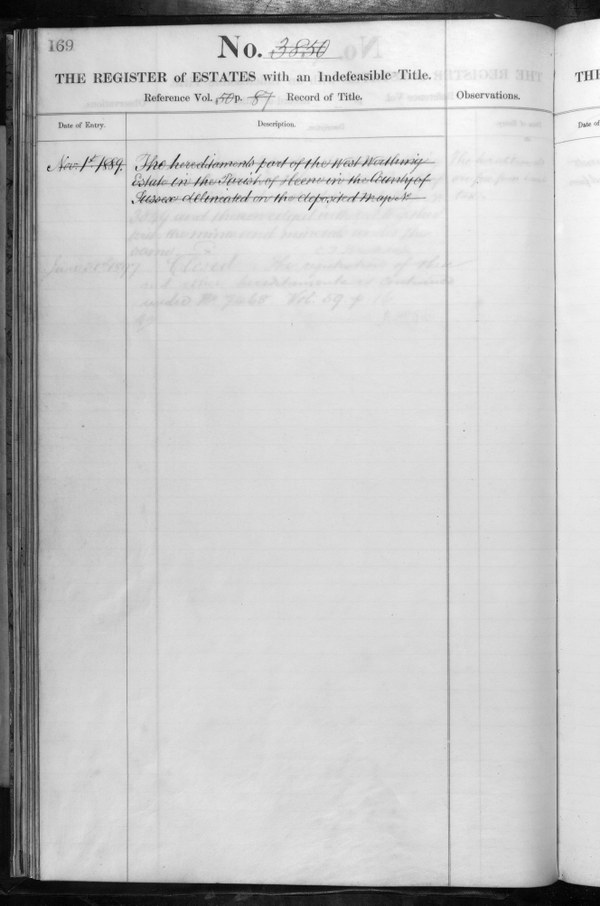 169
No. 3850
THE REGISTER of ESTATES with an Indefeasible Title.
Reference Vol. 50 p. 87 Record of Title.
Observations.
Date of Entry.
Description.
Nov 1st 1889.
The hereditaments part of the West Worthing
Estate in the Parish of Heene in the County of
Sussex delineated on the deposited Map No
Closed The registration of these
and other hereditaments is continued
under No
THE
Date of